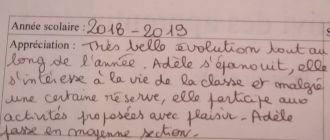 Année scolaire : 2018 - 2019
Appréciation : Très belle évolution tout au
long de l'année. Adèle s'épanouit, elle
s'intéresse à la vie de la classe et malgré
une certaine réserve, elle partage aux
activités proposées avec plaisir. Adèle
passe en moyenne section.